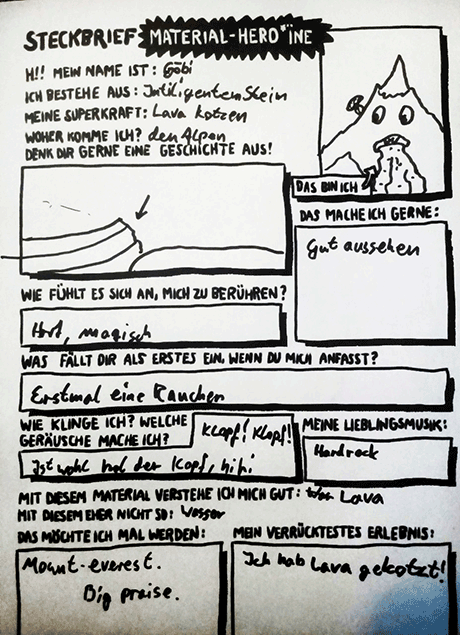 STECKBRIEF MATERIAL-HERO*INE
H!! MEIN NAME IST: Göbi
ICH BESTEHE AUS: Intiligenten Stein
MEINE SUPERKRAFT: Lava kotzen
WOHER KOMME ICH? den Alpen
DENK DIR GERNE EINE GESCHICHTE AUS!
DAS BIN ICH
DAS MACHE ICH GERNE:
Gut aussehen
WIE FÜHLT ES SICH AN, MICH ZU BERÜHREN?
Hart, magisch
WAS FÄLLT DIR ALS ERSTES EIN, WENN DU MICH ANFASST?
Erstmal eine Rauchen
WIE KLINGE ICH? WELCHE
GERÄUSCHE MACHE ICH?
Klopf! Klopf!
Ist wohl der Kopf, hihi
MEINE LIEBLINGSMUSIK:
Hardrock
MIT DIESEM MATERIAL VERSTEHE ICH MICH GUT: Lava
MIT DIESEM EHER NICHT SO: Wasser
DAS MÖCHTE ICH MAL WERDEN:
Mount-everest.
Big praise.
MEIN VERRÜCKTESTES ERLEBNIS:
Ich hab Lava gekotzt!